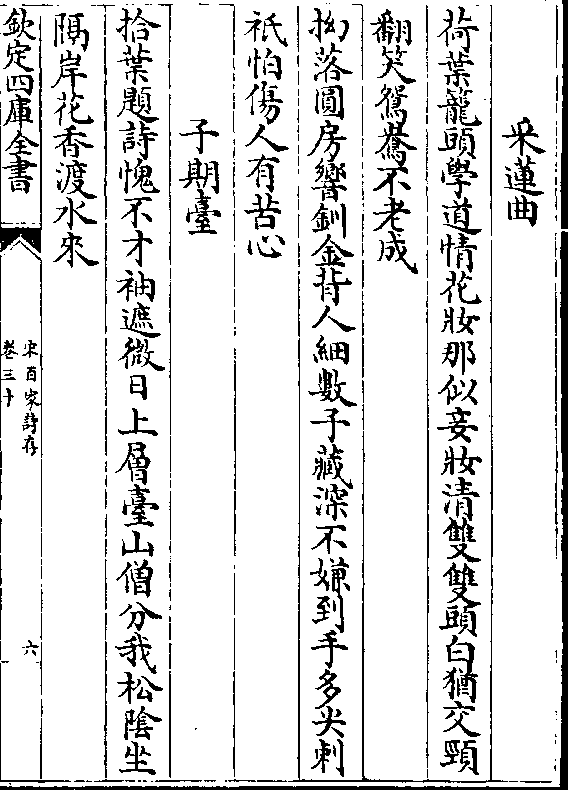 采蓮曲
荷葉籠頭學道情花妝那似妾妝清雙雙頭白猶交頸
翻笑鴛鴦不老成
拗落圓房響釧金背人細數子藏深不嫌到手多尖刺
祇怕傷人有苦心
子期臺
拾葉題詩愧不才袖遮微日上層臺山僧分我松陰坐
隔岸花香渡水來
欽定四庫全書
宋百家詩存
卷三十
六